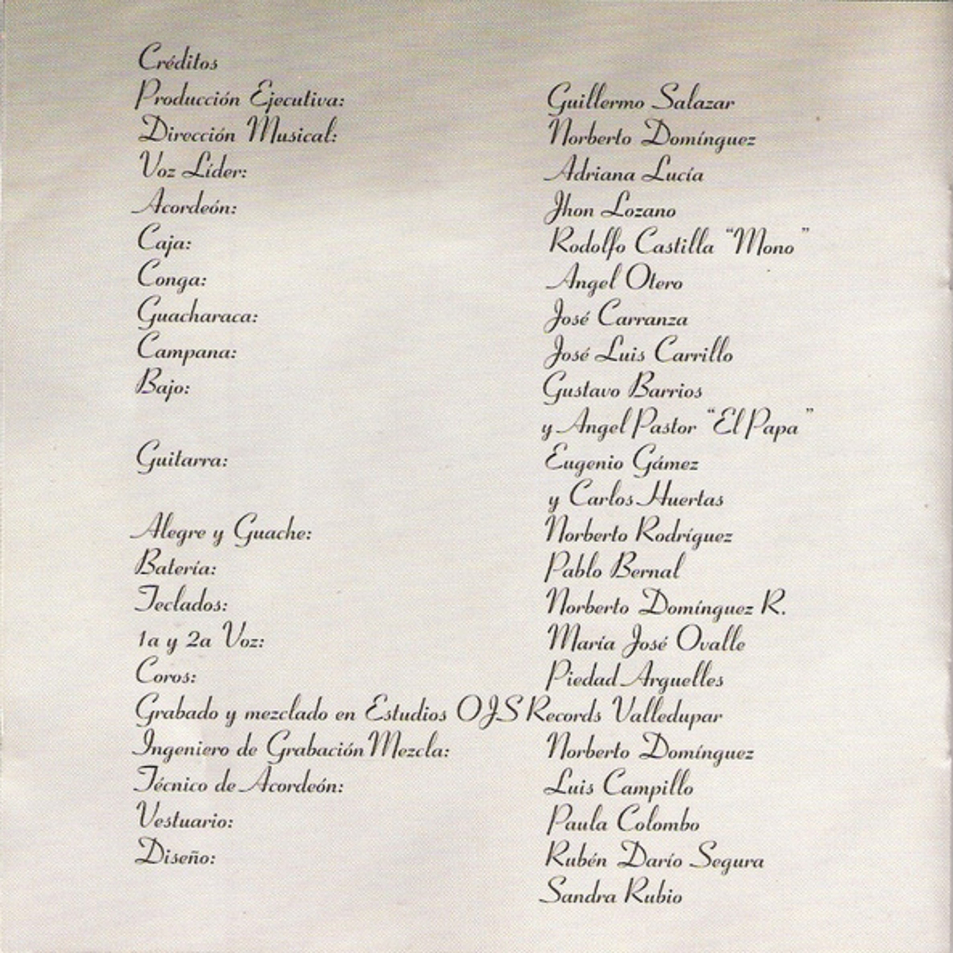 Créditos
Producción Ejecutiva: Guillermo Salazar
Dirección Musical: Norberto Domínguez
Voz Líder: Adriana Lucía
Acordeón: Jhon Lozano
Caja: Rodolfo Castilla "Mono"
Conga: Angel Otero
Guacharaca: José Carranza
Campana: José Luis Carrillo
Bajo: Gustavo Barrios
y Angel Pastor "El Papa"
Guitarra: Eugenio Gámez
y Carlos Huertas
Alegre y Guache: Norberto Rodríguez
Batería: Pablo Bernal
Teclados: Norberto Domínguez R.
1a y 2a Voz: María José Ovalle
Coros: Piedad Arguelles
Grabado y mezclado en Estudios OJS Records Valledupar
Ingeniero de Grabación Mezcla: Norberto Domínguez
Técnico de Acordeón: Luis Campillo
Vestuario: Paula Colombo
Diseño: Rubén Darío Segura
Sandra Rubio